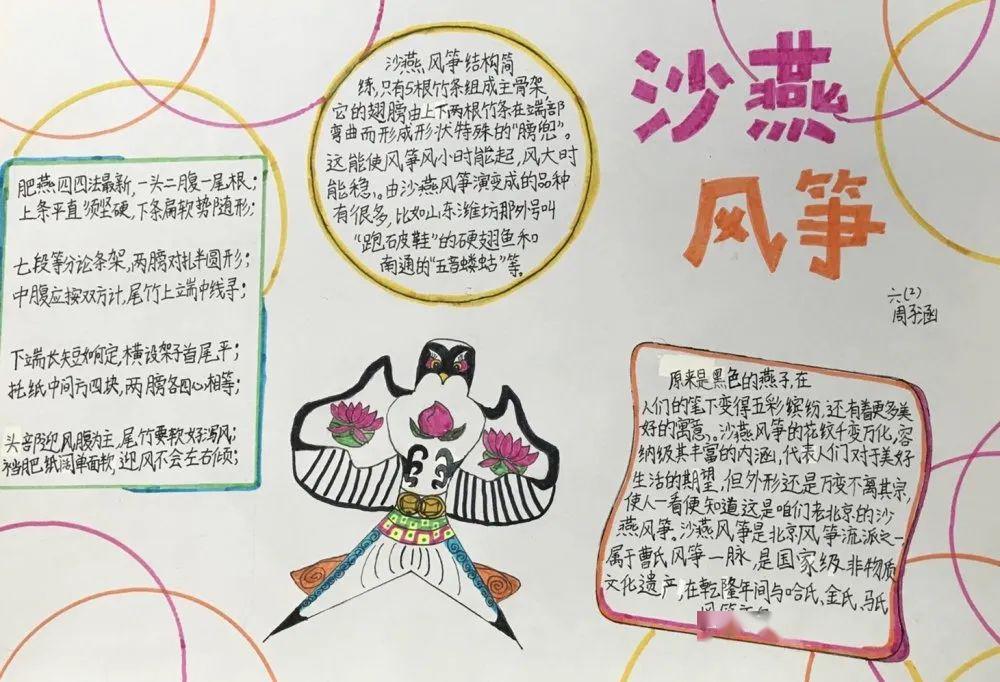 沙燕
风筝
六(2)
周子涵
沙燕风筝结构简
练,只有5根竹条组成主骨架
它的翅膀由上下两根竹条在端部
弯曲而形成形状特殊的“膀兜”。
这能使风筝风小时能起,风大时
能稳、。由沙燕风筝演变成的品种
有很多,比如山东潍坊那外号叫
“跑石皮鞋”的硬翅鱼和
南通的“五音蝼蛄”等。
肥燕四四法最新,一头二腹一尾根;
上条平直须坚硬,下条扁软势随形;
七段等分论条架,两膀对扎半圆形;
中腹应按双方计,尾竹上端中线寻;
下端长短如何定,横设架子首尾平;
托纸中间方四块,两膀各四心相等;
头部迎风膀为主,尾竹要软好泻风;
裆肥纸阔单面软,迎风不会左右倾;
原来是黑色的燕子,在
人们的笔下变得五彩缤纷,还有着更多美
好的寓意、。沙燕风筝的花纹千变万化,容
纳级其丰富的内涵,代表人们对于美好
生活的期望,但外形还是万变不离其宗,
使人一看便知道这是咱们老北京的沙
燕风筝。沙燕风筝是北京风筝流派之一
属于曹氏风筝一脉,是国家级非物质
文化遗产,在乾隆年间与哈氏、金氏、马氏